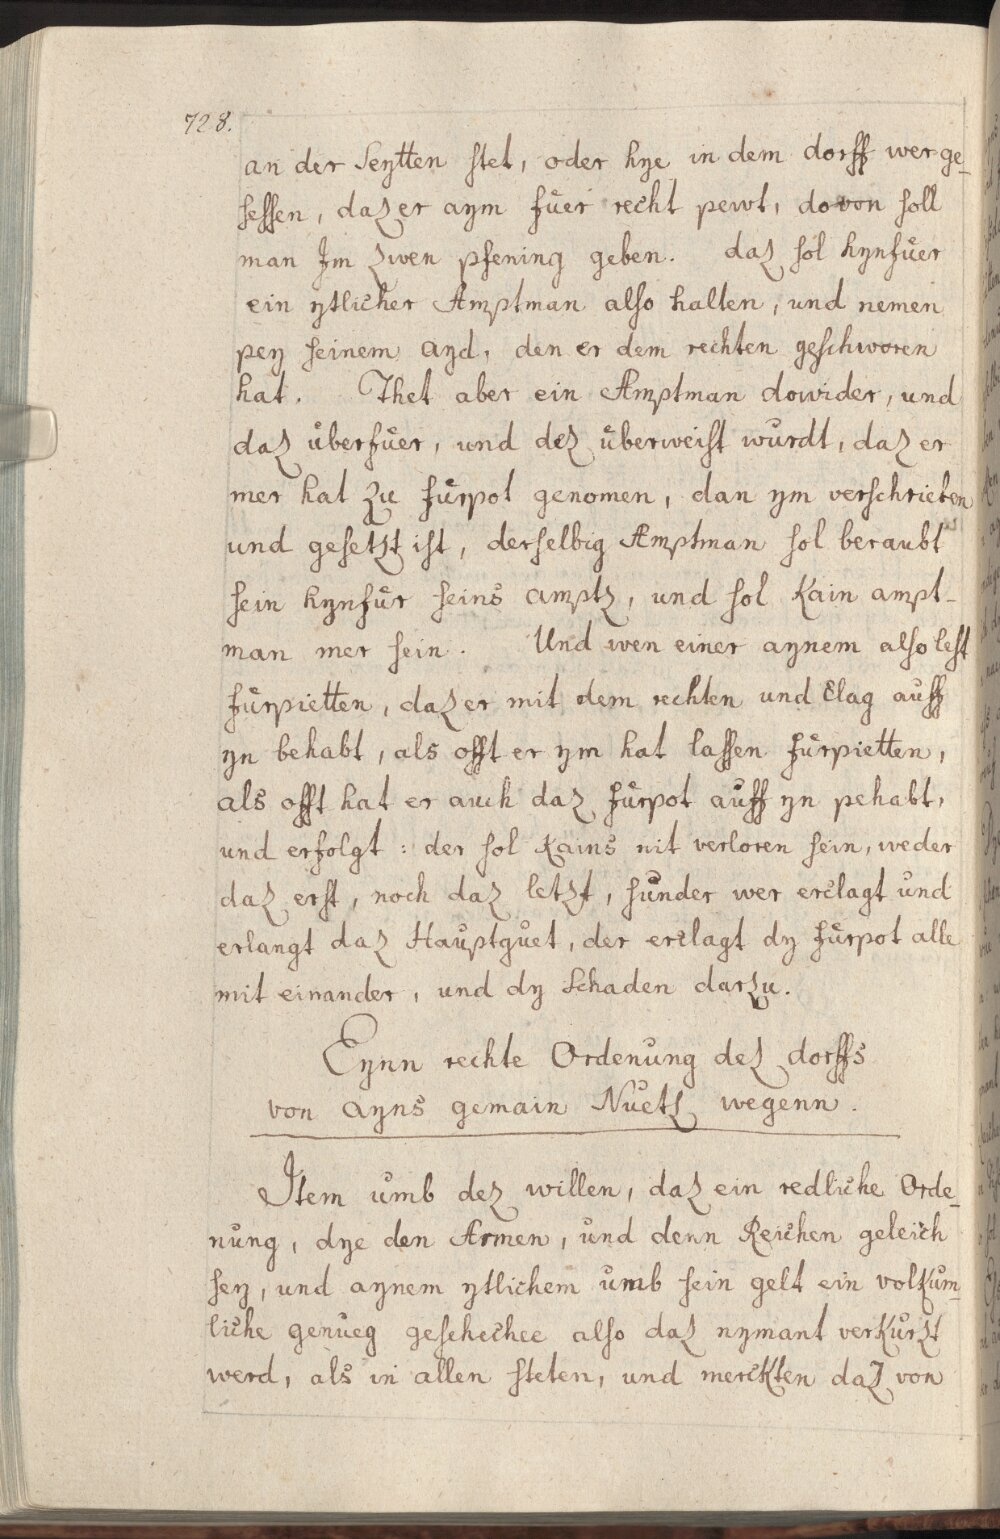 728.
an der Seytten stet, oder hye in dem dorff wer ge-
sessen, daz er aym fuer recht pewt, dovon soll
man Jm zwen pfening geben. daz sol hynfuer
ein ytlicher Amptman also halten, und nemen
pey seinem ayd, den er dem rechten geschworen
hat. Thet aber ein Amptman dowider, und
daz uberfuer, und dez uberweist wurdt, daz er
mer hat zu furpot genomen, dan ym verschrieben
und gesetzt ist, derselbig Amptman sol beraubt
sein hynfur seins amptz, und sol Kain ampt-
man mer sein. Und wen einer aynem also lest
furpietten, daz er mit dem rechten und Clag auff
yn behabt, als offt er ym hat lassen furpietten,
als offt hat er auch daz furpot auff yn pehabt,
und erfolgt: der sol Kains nit verloren sein, weder
daz erst, noch daz letzt, sunder wer erclagt und
erlangt daz Hauptguet, der erclagt dy furpot alle
mit einander, und dy Schaden darzu.
Eynn rechte Ordenung dez dorffs
von ayns gemain Nuetz wegenn.
Jtem umb dez willen, daz ein redliche Orde-
nung, dye den Armen, und denn Reichen geleich
sey, und aynem ytlichem umb sein gelt ein volkum-
liche genueg geschechee also daz nymant verkurzt
werd, als in allen steten, und merckten daz von